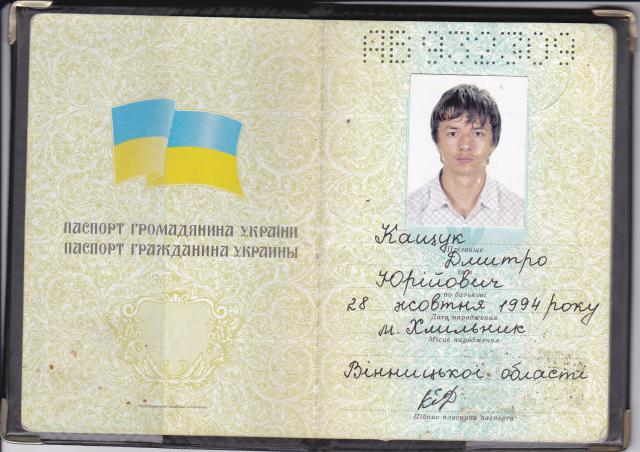 АБ 932309
ПАСПОРТ ГРОМАДЯНИНА УКРАЇНИ
ПАСПОРТ ГРАЖДАНИНА УКРАИНЫ
Кащук
Прізвище
Дмитро
Юрійович
по батькові
28 жовтня 1994 року
Дата народження
м. Хмільник
Місце народження
Вінницької області
Підпис власника паспорта